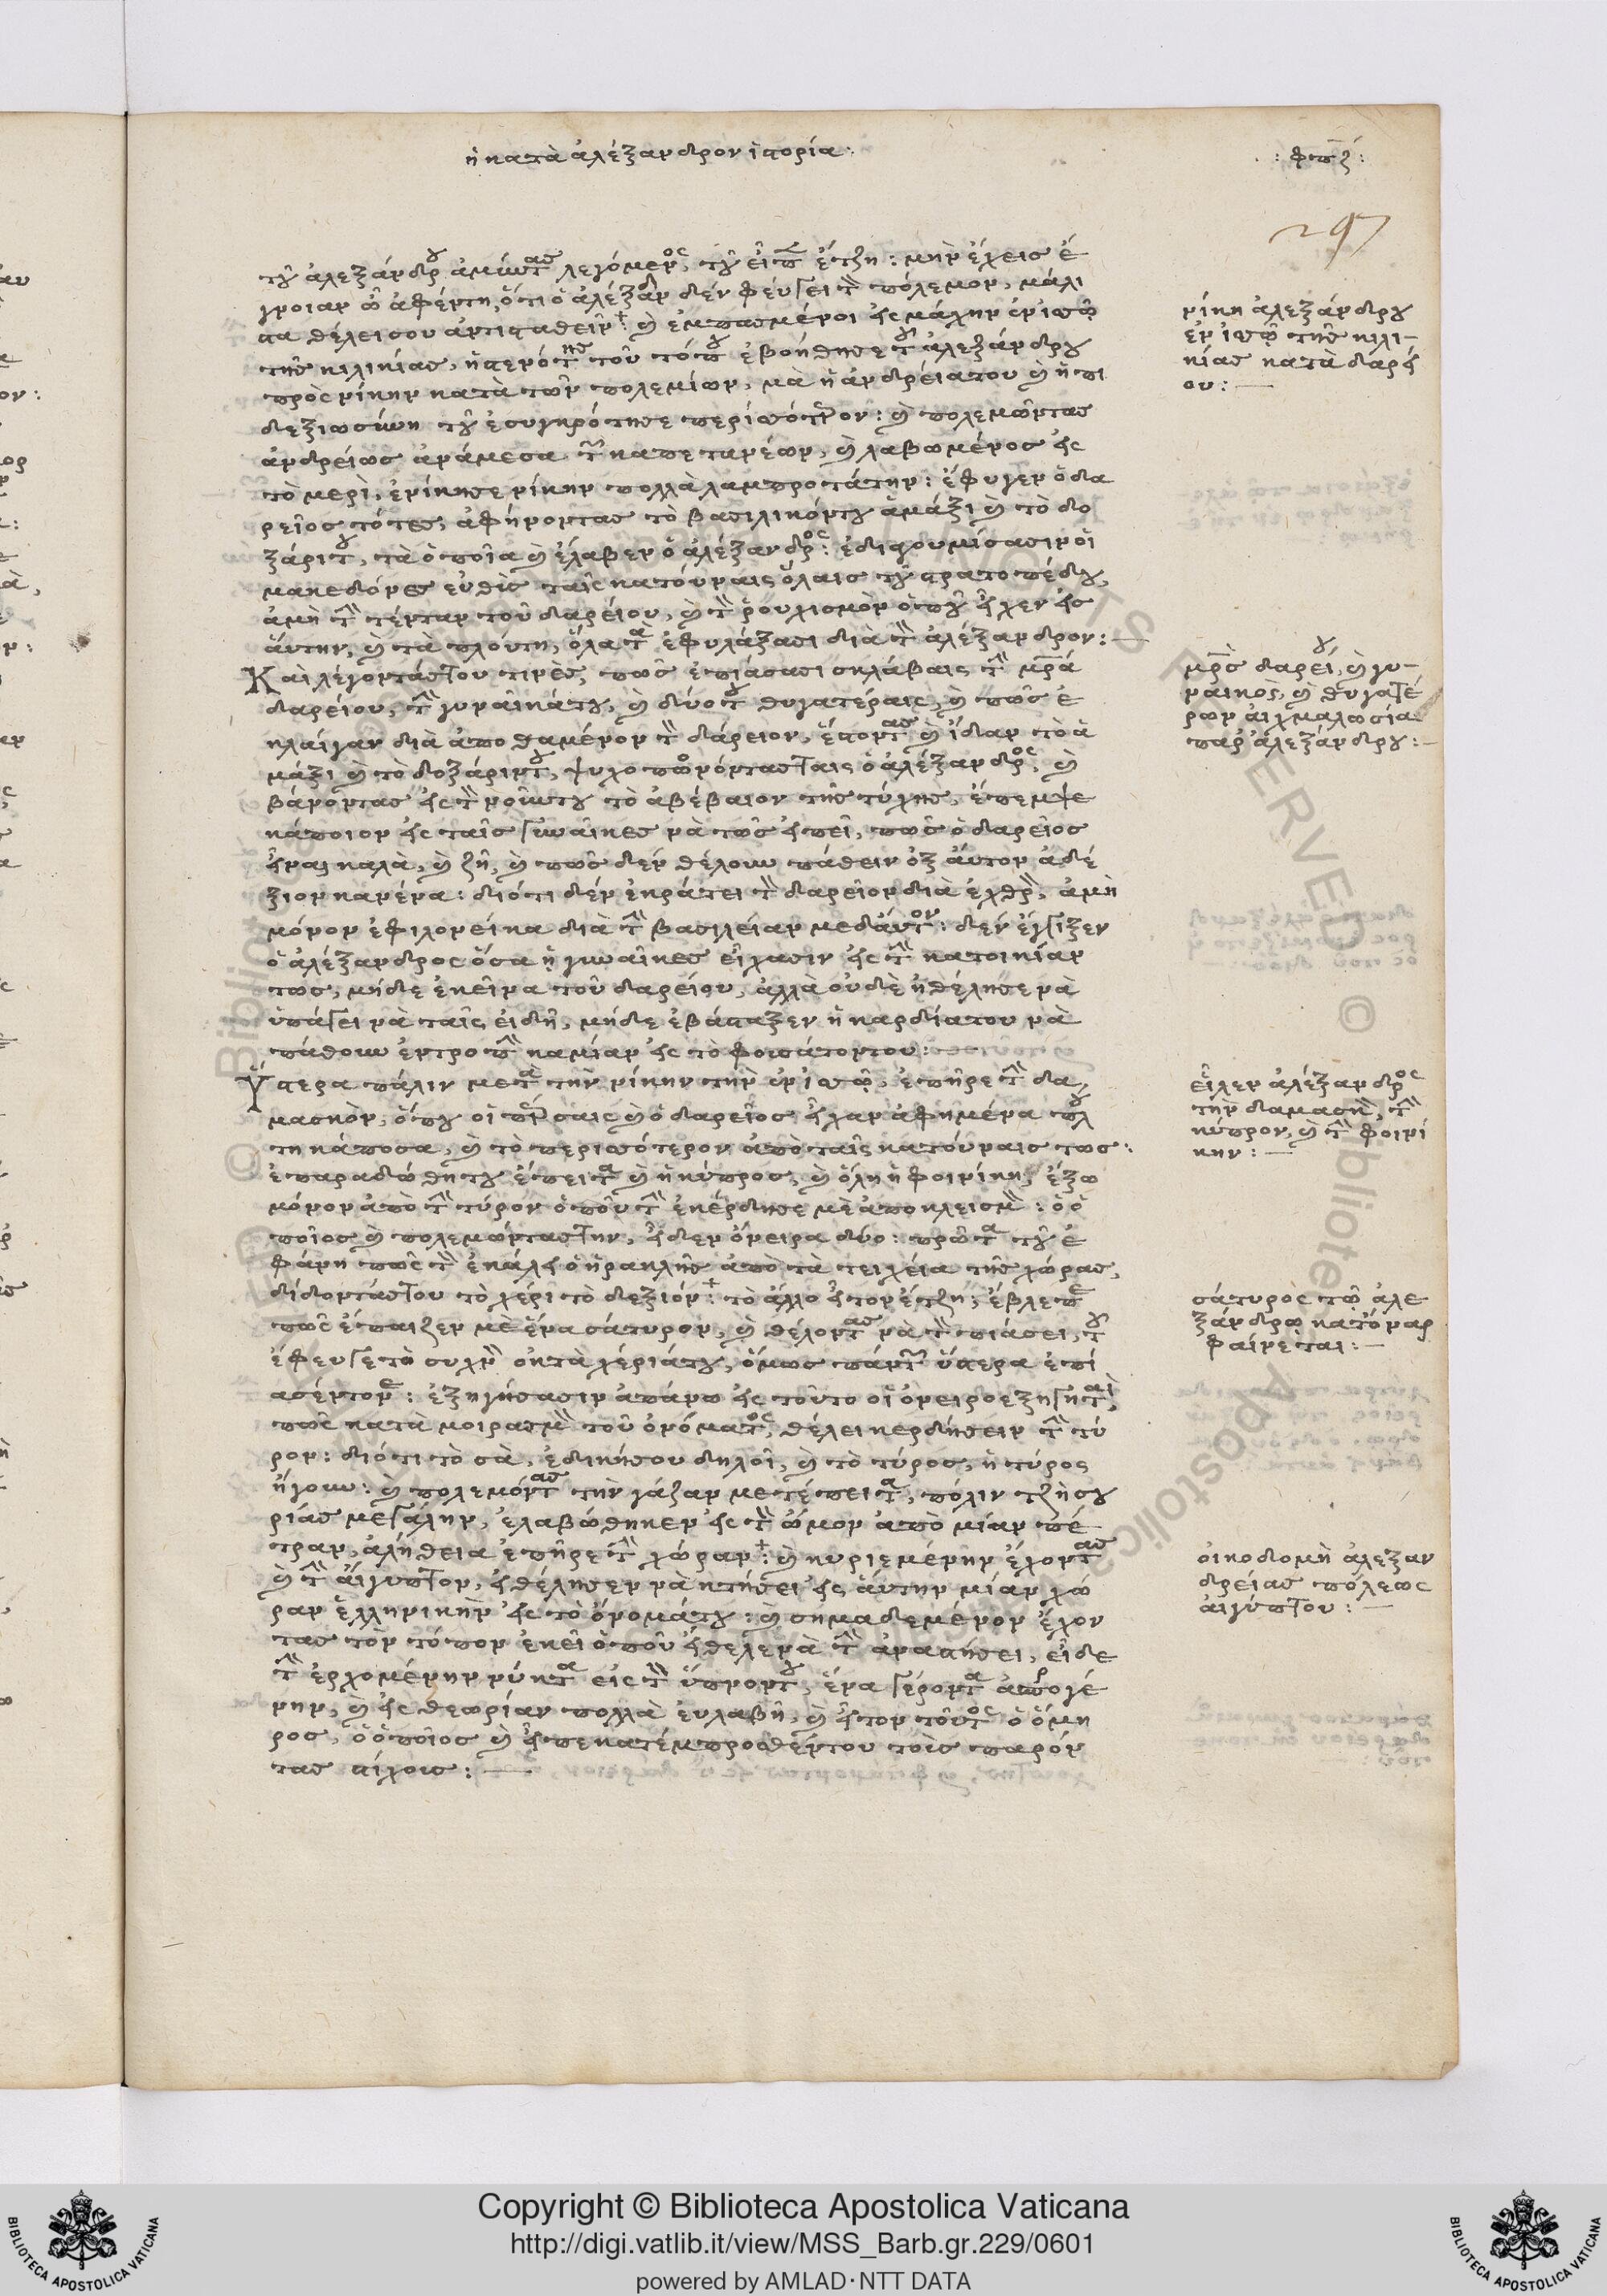 ἡ κατὰ ἀλέξανδρον ἱστορία:
: φπζ :
297
τοῦ ἀλεξάνδρου ἀμύντας λεγόμενος, τοῦ εἶπε ἔτζη: μὴν ἔχεις ἔ
γνοιαν ὦ ἀφέντη, ὅτι ὁ ἀλέξανδρος δὲν φεύγει τὸν πόλεμον, μάλι
στα θέλει σου ἀντισταθεῖν: καὶ ἐμπασμένοι εἰς μάχην ἐν ἰσσῷ
τῆς κιλικίας, ἡ στενότης τοῦ τόπου ἐβοήθησε τοῦ ἀλεξάνδρου
πρὸς νίκην κατὰ τῶν πολεμίων, μὰ ἡ ἀνδρεία του καὶ ἡ ἐπι
δεξιωσύνη τοῦ ἐσυγκρότησε περισσότερον: καὶ πολεμῶντας
ἀνδρείως ἀνάμεσα τῶν καπετανέων, καὶ λαβωμένος εἰς
τὸ μερὶ, ἐνίκησε νίκην πολλὰ λαμπροτάτην: ἔφυγεν ὁ δα
ρεῖος τότες, ἀφήνοντας τὸ βασιλικόντου ἁμάξι καὶ τὸ δο
ξάριτου, τὰ ὁποῖα καὶ ἔλαβεν ὁ ἀλέξανδρος: ἐδιαγουμίσασιν οἱ
μακεδόνες εὐθὺς ταῖς κατούναις ὅλαις τοῦ στρατοπέδου,
ἀμὴ τὴν τένταν τοῦ δαρείου, καὶ τὸν ῥουχισμὸν ὁποῦ εἶχεν εἰς
αὔτην, καὶ τὰ πλούτη, ὅλα τὰ ἐφυλάξασι διὰ τὸν ἀλέξανδρον:
Καὶ λέγοντάς του τινὲς, πῶς ἐπιάσασι σκλάβαις τὴν μητέρα
δαρείου, τὴν γυναῖκάτου, καὶ δύοτου θυγατέραις, καὶ πῶς ἐ
κλαίγαν διὰ ἀποθαμένον τὸν δάρειον, ἔστοντας καὶ ἴδαν τὸ ἁ
μάξι καὶ τὸ δοξάριντου, ψυχοπονόντας ταις ὁ ἀλέξανδρος, καὶ
βάνοντας εἰς τὸν νοῦντου τὸ ἀβέβαιον τῆς τύχης, ἔπεμψε
κάποιον εἰς ταῖς γυναῖκες νὰ τῶς εἰπεῖ, πῶς ὁ δαρεῖος
εἶναι καλὰ, καὶ ζῆ, καὶ πῶς δὲν θέλουν πάθειν ὀξ αὔτον ἀδέ
ξιον κανένα: διότι δὲν ἐκράτει τὸν δαρεῖον διὰ ἐχθρὸν, ἀμὴ
μόνον ἐφιλονείκα διὰ τὴν βασιλείαν μεδαύτον: δὲν ἔγγιξεν
ὁ ἀλέξανδρος ὅσα ἡ γυναῖκες εἴχασιν εἰς τὴν κατοικίαν
τως, μήδε ἐκεῖνα τοῦ δαρείου, ἀλλὰ οὐδὲ ἠθέλησε νὰ
ὑπάγει νὰ ταῖς εἰδῆ, μήδε ἐβάσταξεν ἡ καρδίατου νὰ
πάθουν ἐντροπὴν καμίαν εἰς τὸ φουσάτοντου:
Ὕστερα πάλιν μετὰ τὴν νίκην τὴν ἐν ἰσσῷ, ἐπῆρε τὴν δα
μασκὸν, ὅπου οἱ πέρσαις καὶ ὁ δαρεῖος εἶχαν ἀφημένα πλού
τη κάποσα, καὶ τὸ περισσότερον ἀπὸ ταῖς κατούναις τως:
ἐπαραδώθητου ἔπειτα καὶ ἡ κύπρος, καὶ ὅλη ἡ φοινίκη, ἔξω
μόνον ἀπὸ τὴν τύρον ὁποῦ τὴν ἐκέρδησε μὲ ἀποκλεισμὸν: ὁ ὁ
ποῖος καὶ πολεμώντας την, εἶδεν ὄνειρα δύο: πρῶτα τοῦ ἐ
φάνη πῶς τὸν ἐκάλει ὁ ἡρακλῆς ἀπὸ τὰ τειχεία τῆς χώρας,
δίδοντάς του τὸ χέρι τὸ δεξιόν: τὸ ἄλλο εἶτον ἔτζη, ἔβλεπε
πῶς ἔπαιζεν με ἕνα σάτυρον, καὶ θέλοντας νὰ τὸν πιάσει, τοῦ
ἔφευγε τὸ συχνὸν ὀκ τὰ χέριάτου, ὅμως πάντων ὕστερα ἐπί
ασέντονε: ἐξηγήσασιν ἀπάνω εἰς τοῦτο οἱ ὀνειροεξηγηταὶ,
πῶς κατὰ μοιρασμὸν τοῦ ὀνόματος, θέλει κερδήσειν τὴν τύ
ρον: διότι τὸ σὰ, ἐδικήσου δηλοῖ, καὶ τὸ τύρος, ἡ τύρος
ἤγουν: καὶ πολεμόντας τὴν γάζαν μετέπειτα, πόλιν τζὴ συ
ρίας μεγάλην, ἐλαβώθηκεν εἰς τὸν ὦμον ἀπὸ μίαν πέ
τραν, ἀλήθεια ἐπῆρε τὴν χώραν: καὶ κυριεμένην ἔχοντας
καὶ τὴν αἴγυπτον, εἰθέλησεν νὰ κτήσει εἰς αὔτην μίαν χώ
ραν ἑλληνικὴν εἰς τὸ ὄνομάτου: καὶ σημαδεμένον ἔχον
τας τὸν τόπον ἐκεῖ ὁποῦ εἴθελε νὰ τὴν ἀναστήσει, εἶδε
τὴν ἐρχομένην νύκτα εἰς τὸν ὕπνοντου, ἕνα γέροντα ἀσπρογέ
νην, καὶ εἰς θεωρίαν πολλὰ εὐλαβῆ, καὶ εἶτον τοῦτος ὁ ὅμη
ρος, ὁ ὁποῖος καὶ εἶπε κατέμπροσθέντου τοὺς παρόν
τας στίχους:
νίκη ἀλεξάνδρου
ἐν ἰσσῷ τῆς κιλι-
κίας κατὰ δαρεί
ου:
μητρὸς δαρείου, καὶ γυ-
ναικὸς, καὶ θυγατέ
ρων αἰχμαλωσία
παρ' ἀλεξάνδρου:
εἷλεν ἀλέξανδρος
τὴν δαμασκὸν, τὴν
κύπρον, καὶ τὴν φοινί
κην:
σάτυρος τῷ ἀλε
ξάνδρῳ κατ' ὄναρ
φαίνεται:
οἰκοδομὴ ἀλεξαν
δρείας πόλεως
αἰγύπτου:
Copyright © Biblioteca Apostolica Vaticana
http://digi.vatlib.it/view/MSS_Barb.gr.229/0601
powered by AMLAD·NTT DATA
BIBLIOTECA APOSTOLICA VATICANA
BIBLIOTECA APOSTOLICA VATICANA